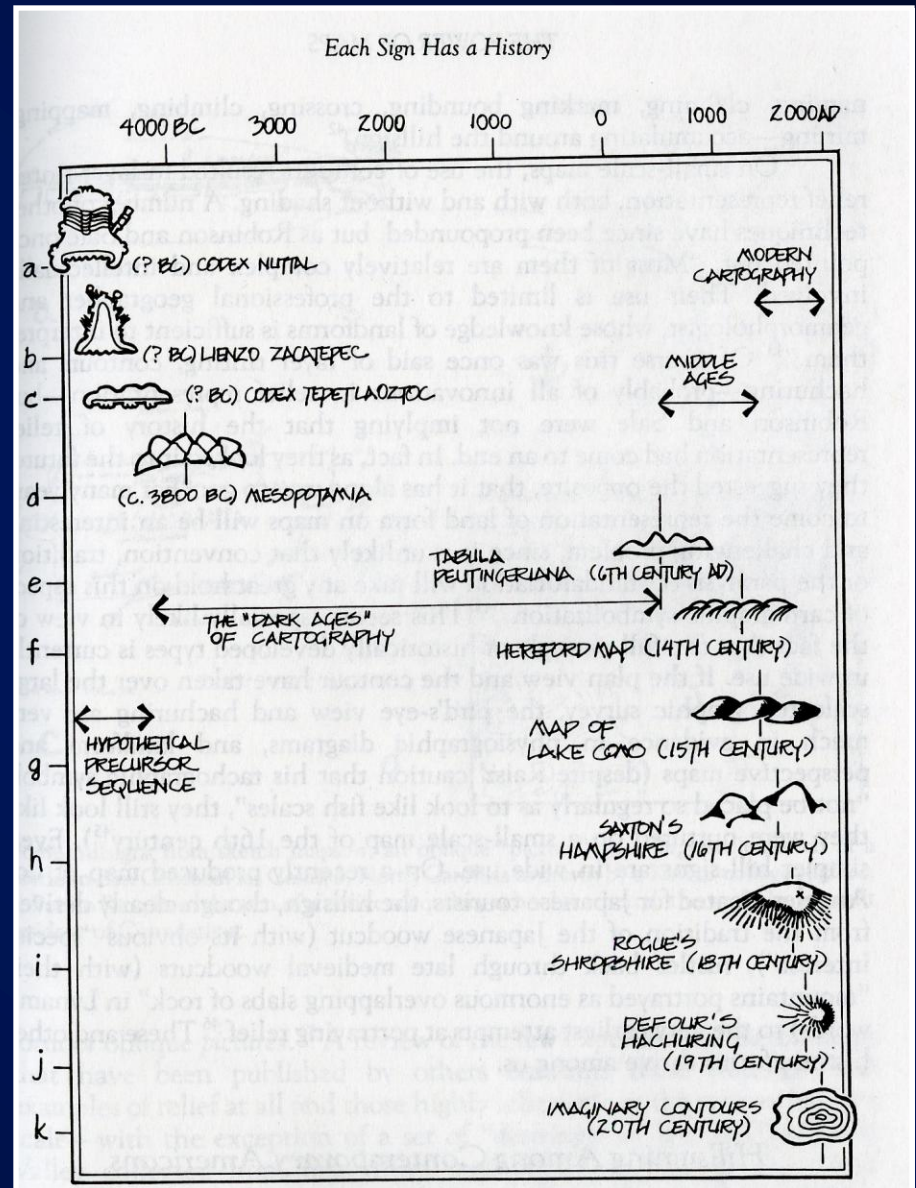 Each Sign Has a History
4000 BC 3000 2000 1000 0 1000 2000 AD
a (? BC) CODEX NUTTAL
MODERN
CARTOGRAPHY
b (? BC) LIENZO ZACATEPEC
MIDDLE
AGES
c (? BC) CODEX TEPETLAOZTOC
d (C. 3800 BC) MESOPOTAMIA
TABULA
e PEUTINGERIANA (6TH CENTURY AD)
THE "DARK AGES"
OF CARTOGRAPHY
f HEREFORD MAP (14TH CENTURY)
HYPOTHETICAL
PRECURSOR
SEQUENCE
MAPS OF
g LAKE COMO (15TH CENTURY)
SAXTON'S
h HAMPSHIRE (16TH CENTURY)
ROQUE'S
i SHROPSHIRE (18TH CENTURY)
DEFOUR'S
HACHURING
j (19TH CENTURY)
IMAGINARY CONTOURS
k (20TH CENTURY)